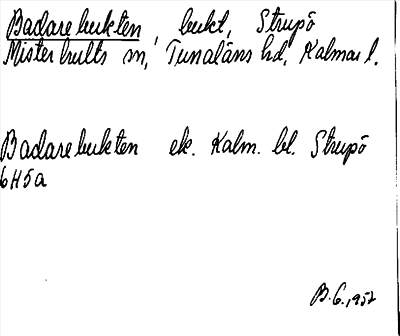 Badarebukten, bukt, Strupö
Misterhults sn, Tunaläns hd, Kalmar l.
Badarebukten ek. Kalm. bl. Strupö
6H5a
B.G., 1952